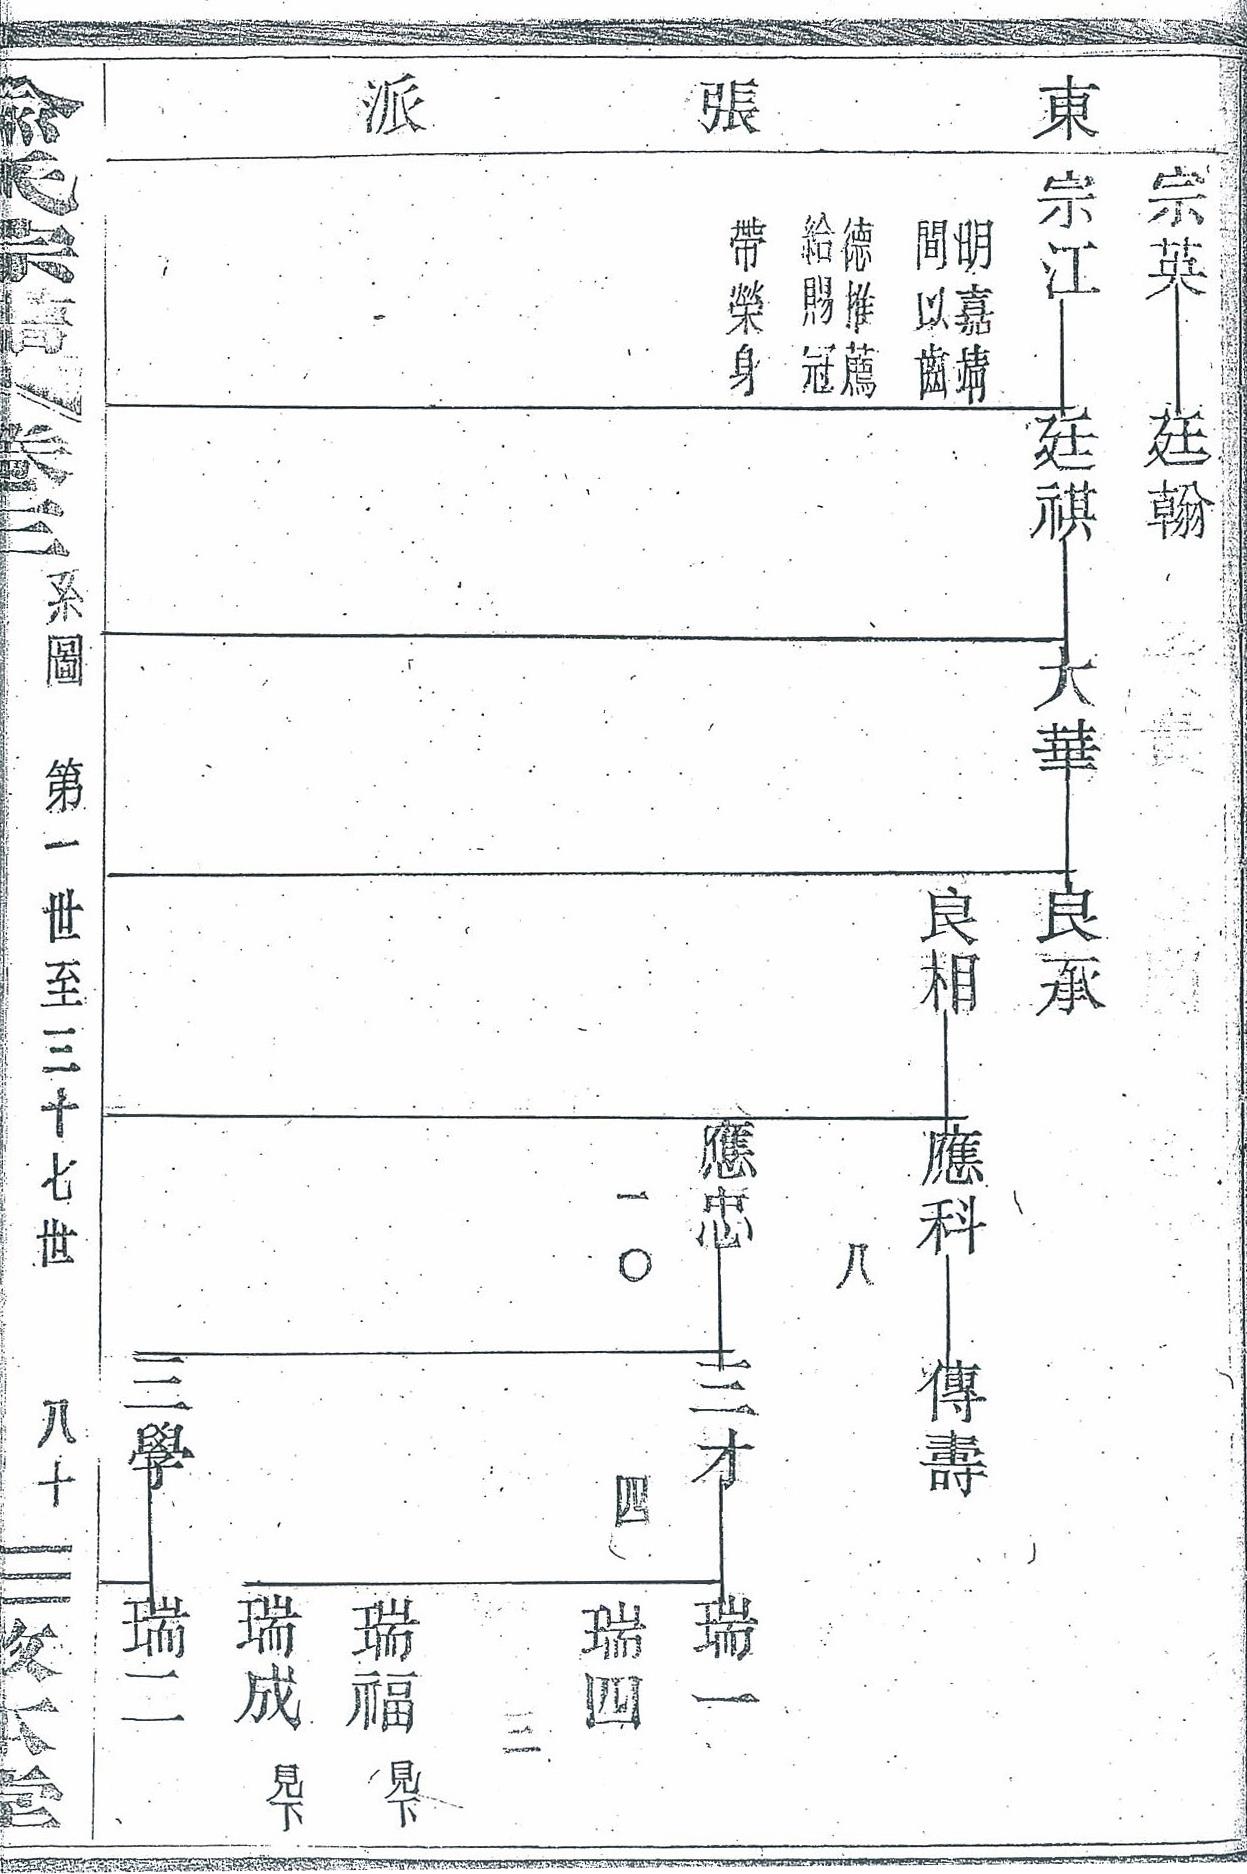 東張派
宗英
宗江
明嘉靖
間以齒
德推薦
給賜冠
帶榮身
廷翰
廷祺
大華
良承
良相
應科
八
應忠
一〇
傳壽
三才
四
三學
瑞一
瑞四
三
瑞福
見下
瑞成
見下
瑞二
俞氏宗譜
卷三
系圖
第一世至三十七世
八十
敦本堂